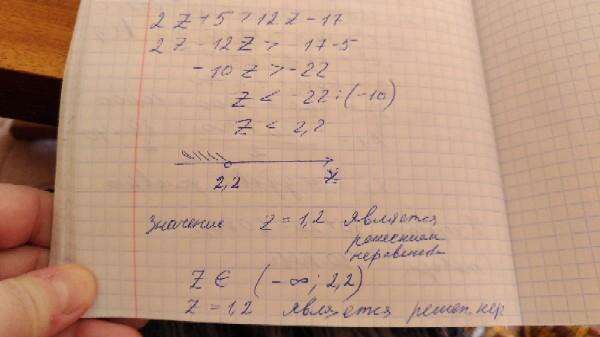 2 Z + 5 > 12 Z - 17
2 Z - 12 Z > - 17 - 5
- 10 Z > - 22
Z < - 22 : (- 10)
Z < 2,2
2,2
Z
Значение Z = 1,2 является
решением
неравенства
Z ∈ (- ∞; 2,2)
Z = 1,2 является решен. нер